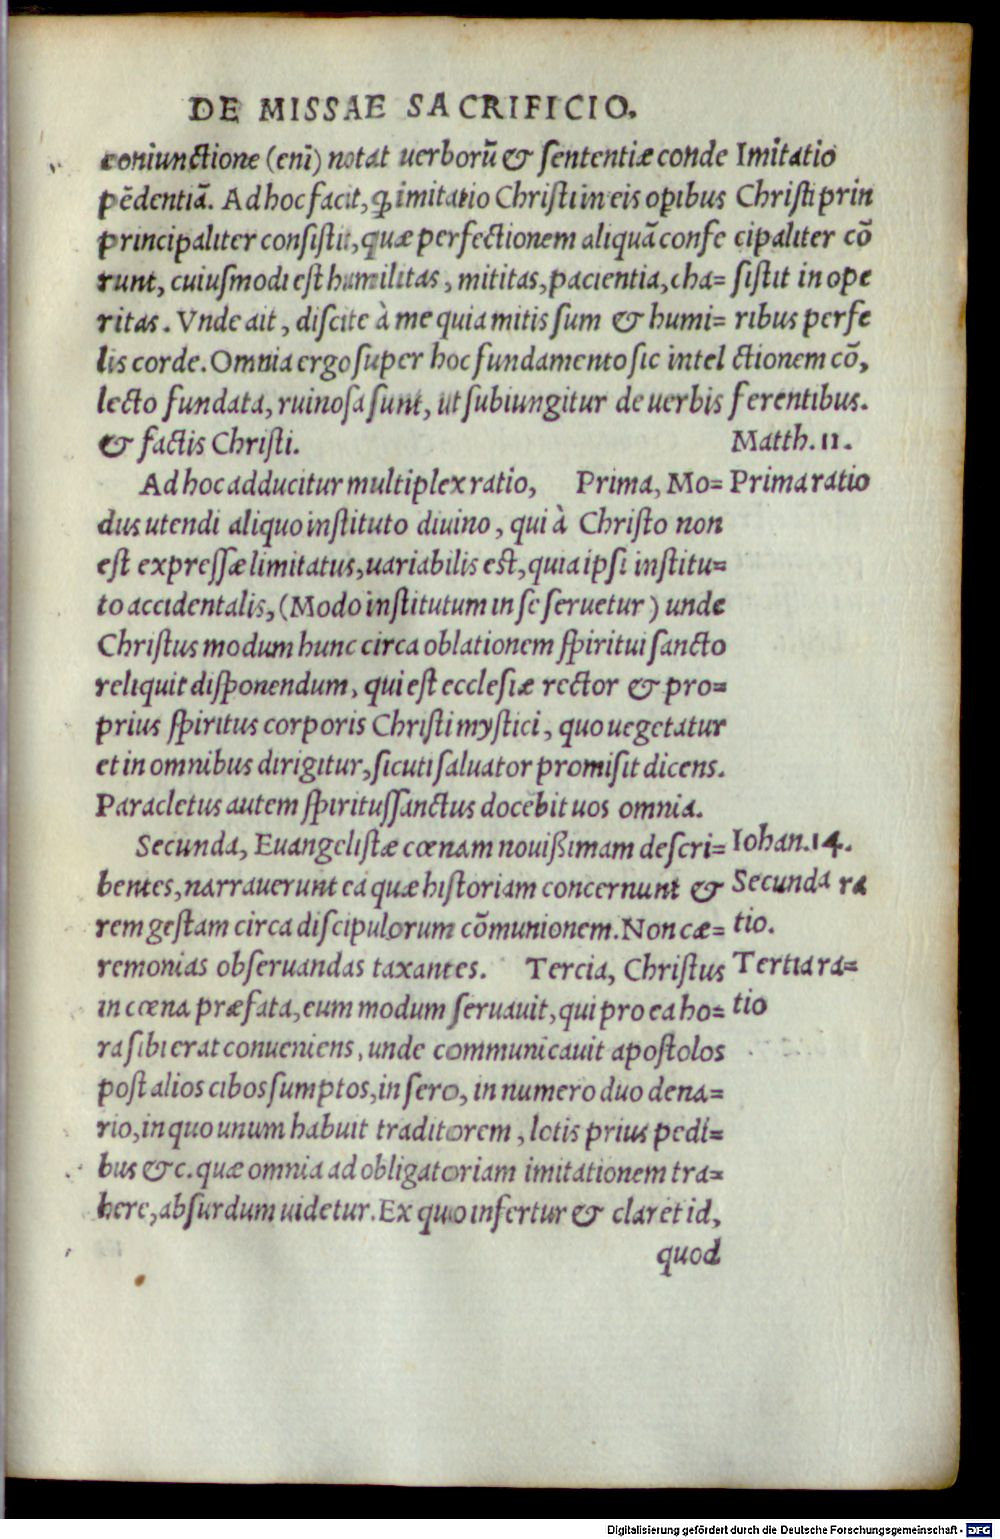 DE MISSAE SACRIFICIO.
coniunctione (enī) notat uerborū & sententiæ conde
pēdentiā. Ad hoc facit, ꝙ imitatio Christi in eis opibus
principaliter consistit, quæ perfectionem aliquā confe
runt, cuiusmodi est humilitas, mititas, pacientia, cha=
ritas. Vnde ait, discite à me quia mitis sum & humi=
lis corde. Omnia ergo super hoc fundamento sic intel
lecto fundata, ruinosa sunt, ut subiungitur de uerbis
& factis Christi.
Imitatio
Christi prin
cipaliter cō
sistit in ope
ribus perfe
ctionem cō,
ferentibus.
Matth. 11.
Ad hoc adducitur multiplex ratio, Prima, Mo=
dus utendi aliquo instituto diuino, qui à Christo non
est expressæ limitatus, uariabilis est, quia ipsi institu=
to accidentalis, (Modo institutum in se seruetur) unde
Christus modum hunc circa oblationem spiritui sancto
reliquit disponendum, qui est ecclesiæ rector & pro=
prius spiritus corporis Christi mystici, quo uegetatur
et in omnibus dirigitur, sicuti saluator promisit dicens.
Paracletus autem spiritussanctus docebit uos omnia.
Prima ratio
Secunda, Euangelistæ cœnam nouißimam descri=
bentes, narrauerunt ea quæ historiam concernunt &
rem gestam circa discipulorum cōmunionem. Non cæ=
remonias obseruandas taxantes. Tercia, Christus
in cœna præfata, eum modum seruauit, qui pro ea ho=
ra sibi erat conueniens, unde communicauit apostolos
post alios cibos sumptos, in sero, in numero duo dena=
rio, in quo unum habuit traditorem, lotis prius pedi=
bus &c. quæ omnia ad obligatoriam imitationem tra=
here, absurdum uidetur. Ex quo infertur & claret id,
Iohan. 14.
Secunda ra
tio.
Tertia ra=
tio
quod
Digitalisierung gefördert durch die Deutsche Forschungsgemeinschaft - DFG